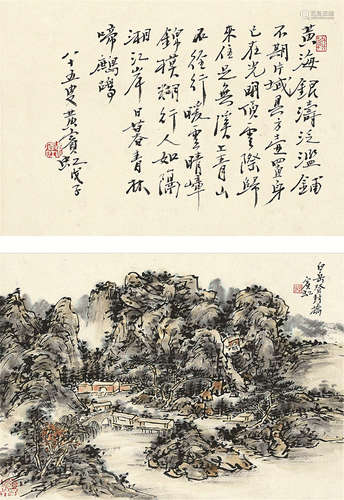 黄海銀濤泛濫鋪
不期片域具方壺置身
已在光明頂雲際歸
來住足無溪上青山
径行暖雲晴嶂
錦模糊行人如隔
湘江岸日暮青林
啼鷓鴣
八十五叟黄賓虹戊子
白岳登封橋
賓虹